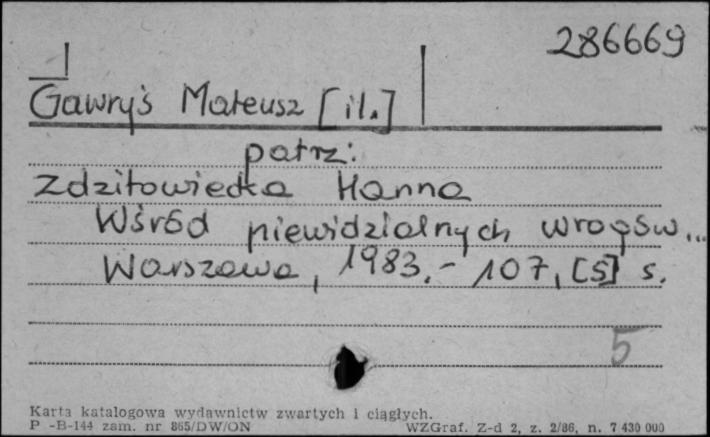 286669
Gawryś Mateusz [il.]
patrz:
Zdzitowiecka Hanna
Wśród niewidzialnych wrogów...
Warszawa, 1983.- 107, [5] s.
5
Karta katalogowa wydawnictw zwartych i ciągłych.
P -B-144 zam. nr 865/DW/ON WZGraf. Z-d 2, z. 2/86, n. 7 430 000